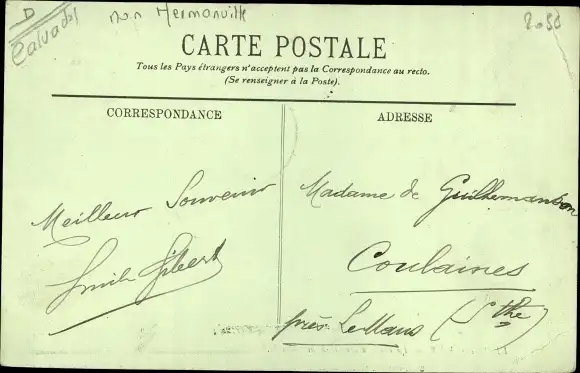 D
Calvados
non Hermanville
CARTE POSTALE
Tous les Pays étrangers n'acceptent pas la Correspondance au recto.
(Se renseigner à la Poste).
CORRESPONDANCE
ADRESSE
Meilleur Souvenir
Emile Gibert
Madame de
Coulaines
près Le Mans (Sthe)